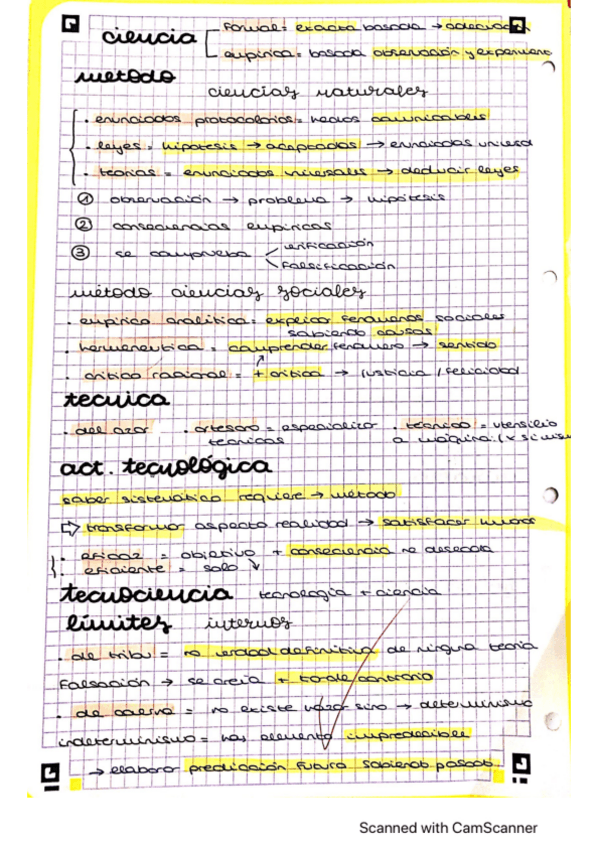 ciencia
formal = exacta basada → adecuación
empírica = basada observación y experimento
metodo
ciencias naturales
. enunciados protocolarios = hechos comunicables
. leyes = hipotesis → aceptadas → enunciados univers
. teorias = enunciados universales → deducir leyes
① observación → problema → hipótesis
② consecuencias empíricas
③ se comprueba
verificación
falsificación
método ciencias sociales
. empirico analitica = explicar fenomenos sociales
sabiendo causas
. hermeneutica = comprender fenomeno → sentido
. critico racional = + critica → justicia / felicidad
tecnica
. del azar . artesano = especializar . técnico = utensilio
tecnicas a máquina
act. tecnológica
saber sistematico requiere → método
⇨ transformar aspecto realidad → satisfacer
. eficaz = objetivo + consecuencia no deseada
. eficiente = solo ↓
tecnociencia tecnología + ciencia
límites internos
. de = no verdad definitiva de ninguna teoria
Falsación → se creía + to de contrario
. de = no existe sino → determinismo
indeterminismo = hay elemento impredecible
→ elaborar predicación futura sabiendo pasado
Scanned with CamScanner